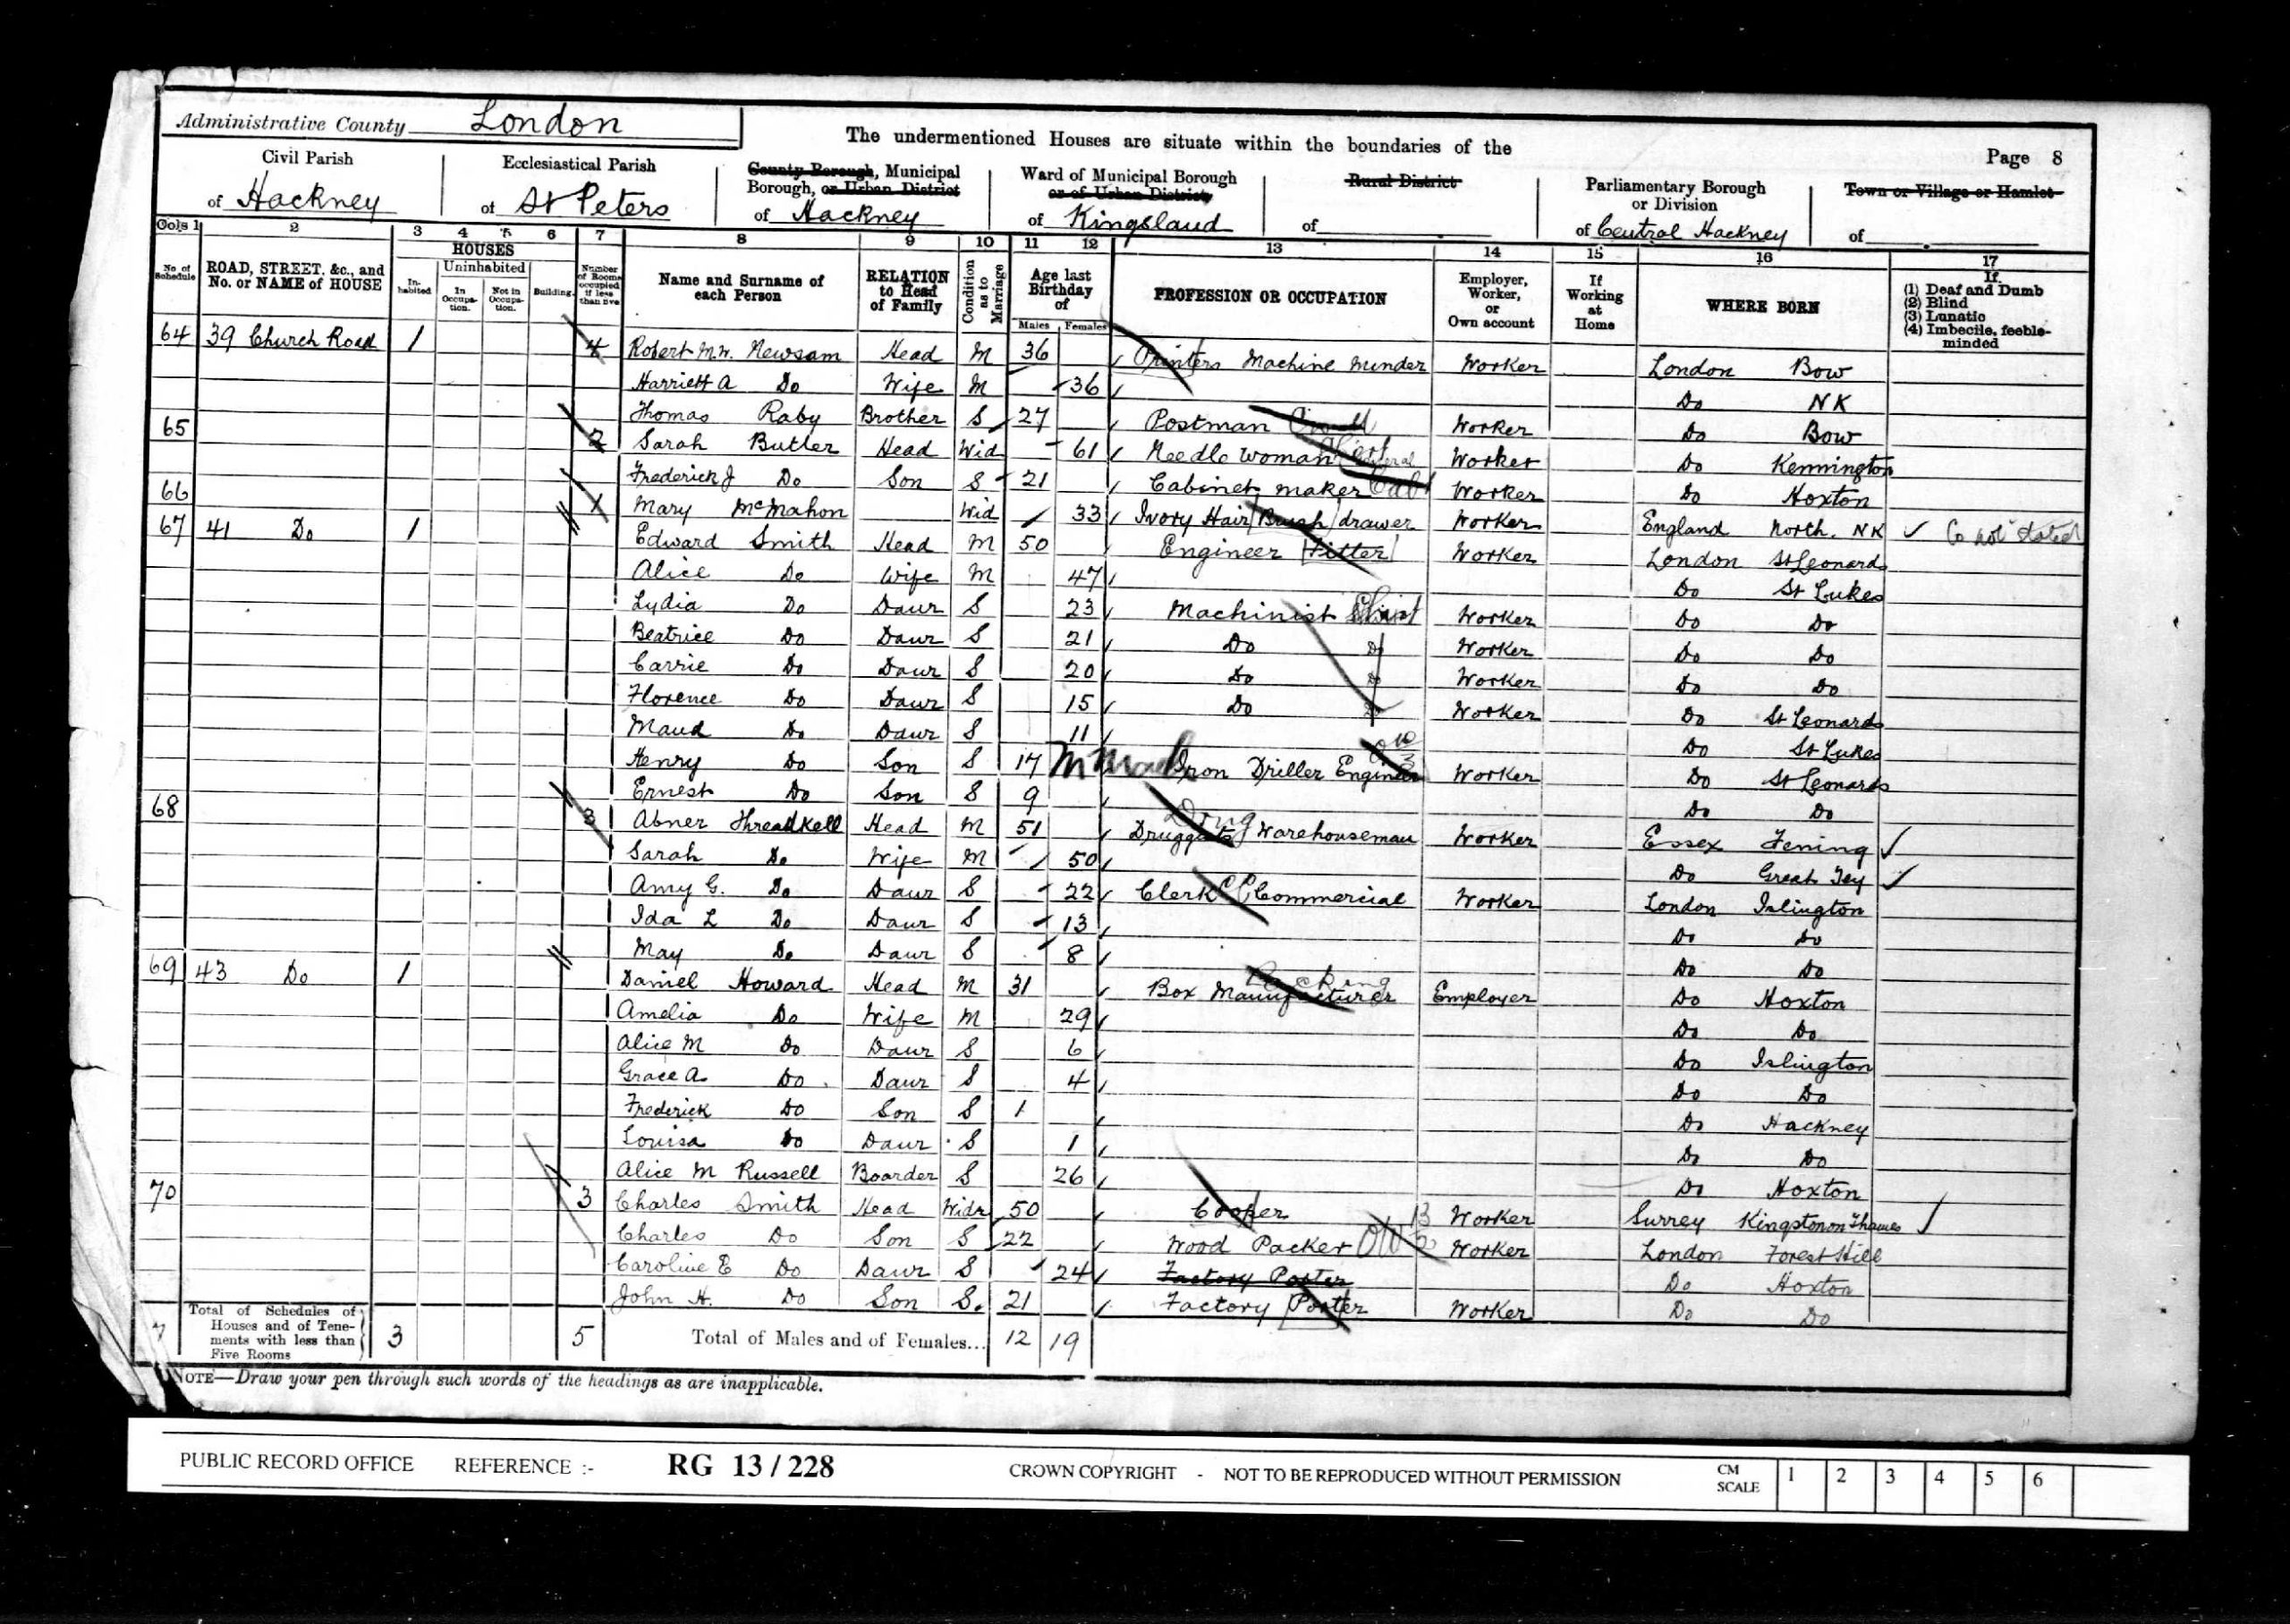 Administrative County London
The undermentioned Houses are situate within the boundaries of the
Page 8
Civil Parish of Hackney
Ecclesiastical Parish of St Peters
County Borough, Municipal Borough, or Urban District of Hackney
Ward of Municipal Borough or of Urban District of Kingsland
Rural District of
Parliamentary Borough or Division of Central Hackney
Town or Village or Hamlet of
Cols 1 2 3 4 5 6 7 8 9 10 11 12 13 14 15 16 17
No. of Schedule
ROAD, STREET, &c., and No. or NAME of HOUSE
HOUSES
Inhabited
Uninhabited
In Occupation.
Not in Occupation.
Building.
Number of Rooms occupied if less than five
Name and Surname of each Person
RELATION to Head of Family
Condition as to Marriage
Age last Birthday of
Males Females
PROFESSION OR OCCUPATION
Employer, Worker, or Own account
If Working at Home
WHERE BORN
If
(1) Deaf and Dumb
(2) Blind
(3) Lunatic
(4) Imbecile, feeble-minded
64 39 Church Road 1 4 Robert Mw. Newsam Head M 36 Printers Machine Minder Worker London Bow
Harriett A Do Wife M 36 Do NK
Thomas Raby Brother S 27 Postman Worker Do Bow
65 2 Sarah Butler Head Wid 61 Needle woman Worker Do Kennington
Frederick J Do Son S 21 Cabinet maker Cab Worker Do Hoxton
66 1 Mary McMahon Wid 33 Ivory Hair Brush drawer Worker England North. NK Co not stated
67 41 Do 1 Edward Smith Head M 50 Engineer Fitter Worker London St Leonards
Alice Do Wife M 47 Do St Lukes
Lydia Do Daur S 23 Machinist Shirt Worker Do Do
Beatrice Do Daur S 21 Do Do Worker Do Do
Carrie Do Daur S 20 Do Do Worker Do Do
Florence Do Daur S 15 Do Do Worker Do St Leonards
Maud Do Daur S 11 Do St Lukes
Henry Do Son S 17 Iron Driller Engineer Worker Do St Leonards
Ernest Do Son S 9 Do Do
68 3 Abner Threadkell Head M 51 Druggists Drug Warehouseman Worker Essex Fening
Sarah Do Wife M 50 Do Great Tey
Amy G. Do Daur S 22 Clerk Commercial Worker London Islington
Ida L Do Daur S 13 Do Do
May Do Daur S 8 Do Do
69 43 Do 1 Daniel Howard Head M 31 Box Manufacturer Packing Employer Do Hoxton
Amelia Do Wife M 29 Do Do
Alice M Do Daur S 6 Do Islington
Grace A. Do Daur S 4 Do Do
Frederick Do Son S 1 Do Hackney
Louisa Do Daur S 1 Do Do
Alice M Russell Boarder S 26 Do Hoxton
70 3 Charles Smith Head Widr 50 Cooper Worker Surrey Kingston on Thames
Charles Do Son S 22 Wood Packer Worker London Forest Hill
Caroline E Do Daur S 24 Factory Porter Do Hoxton
John H. Do Son S. 21 Factory Porter Worker Do Do
7 Total of Schedules of Houses and of Tenements with less than Five Rooms 3 5 Total of Males and of Females... 12 19
NOTE—Draw your pen through such words of the headings as are inapplicable.
PUBLIC RECORD OFFICE REFERENCE :- RG 13/228 CROWN COPYRIGHT - NOT TO BE REPRODUCED WITHOUT PERMISSION CM SCALE 1 2 3 4 5 6